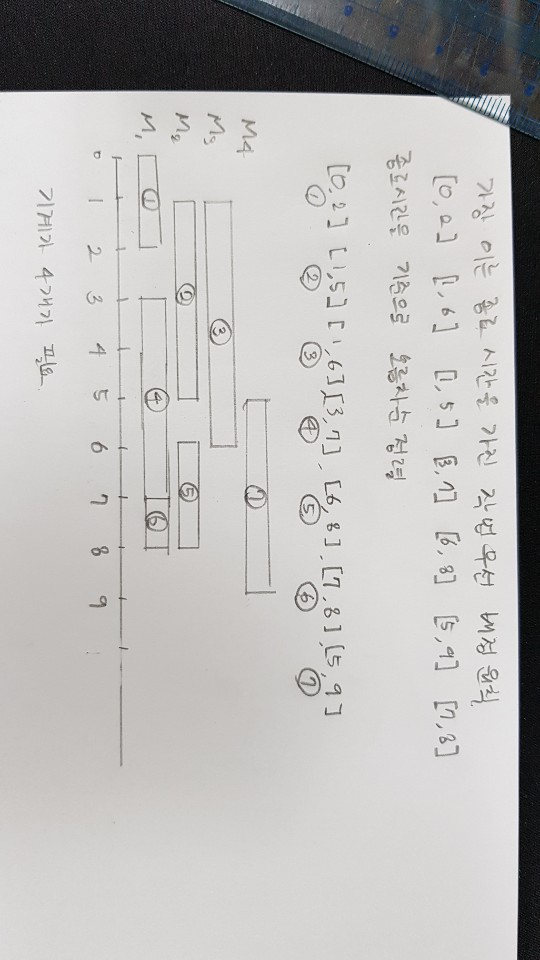 가장 이른 종료 시간을 가진 작업 우선 배정 원칙
[0,2] [1,6] [1,5] [3,7] [6,8] [5,9] [7,8]
종료시간을 기준으로 오름차순 정렬
[0,2] [1,5] [1,6] [3,7]. [6,8]. [7,8] [5,9]
① ② ③ ④ ⑤ ⑥ ⑦
M4 ⑦
M3 ③
M2 ② ⑤
M1 ① ④ ⑥
0 1 2 3 4 5 6 7 8 9
기계가 4개가 필요.